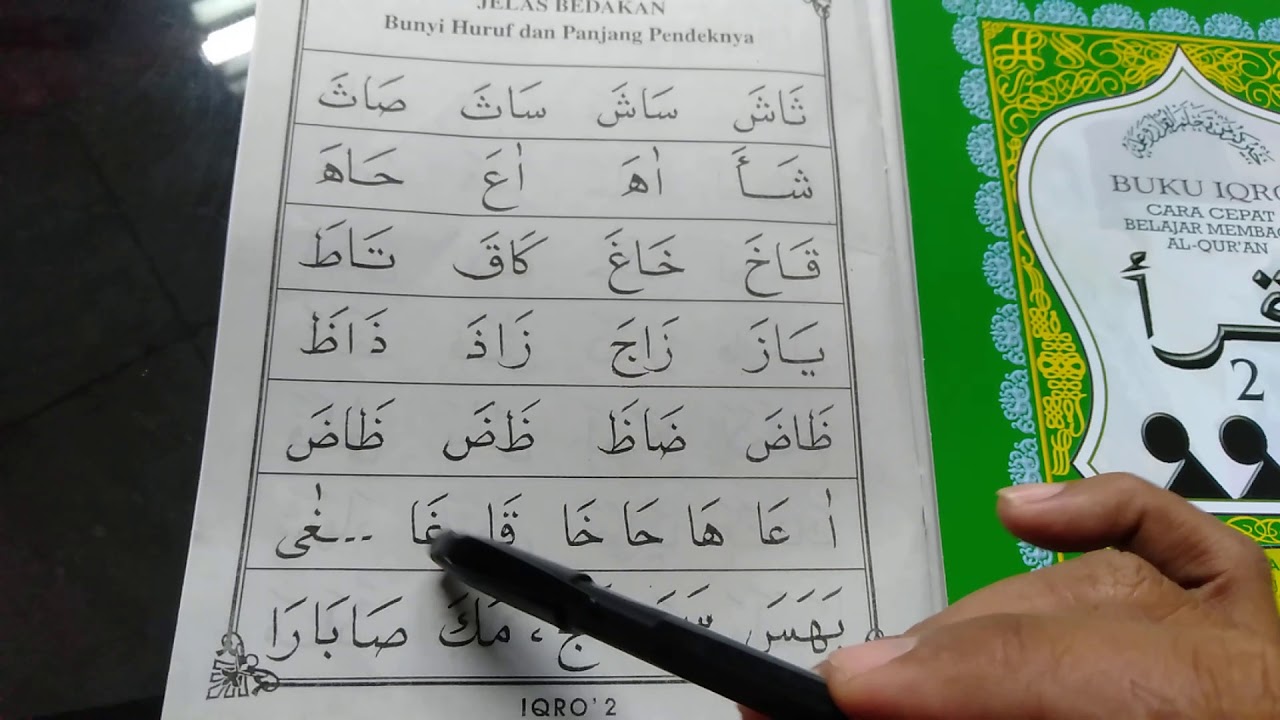 JELAS BEDAKAN
Bunyi Huruf dan Panjang Pendeknya
ثَاشَ سَاشَ سَاثَ صَاثَ
شَـأَ اٰهَ اٰعَ حَاهَ
قَاخَ خَاغَ كَاقَ تَاطَ
يَازَ زَاجَ زَاذَ ذَاظَ
ظَاضَ ضَاظَ ظَضَ ظَاضَ
اٰ عَا هَا حَا خَا قَا غَا ۔۔ـغٰى
بَهَسَ ، مَكَ صَابَارَا
IQRO' 2
BUKU IQRO
CARA CEPAT
BELAJAR MEMBACA
AL-QUR'AN
2